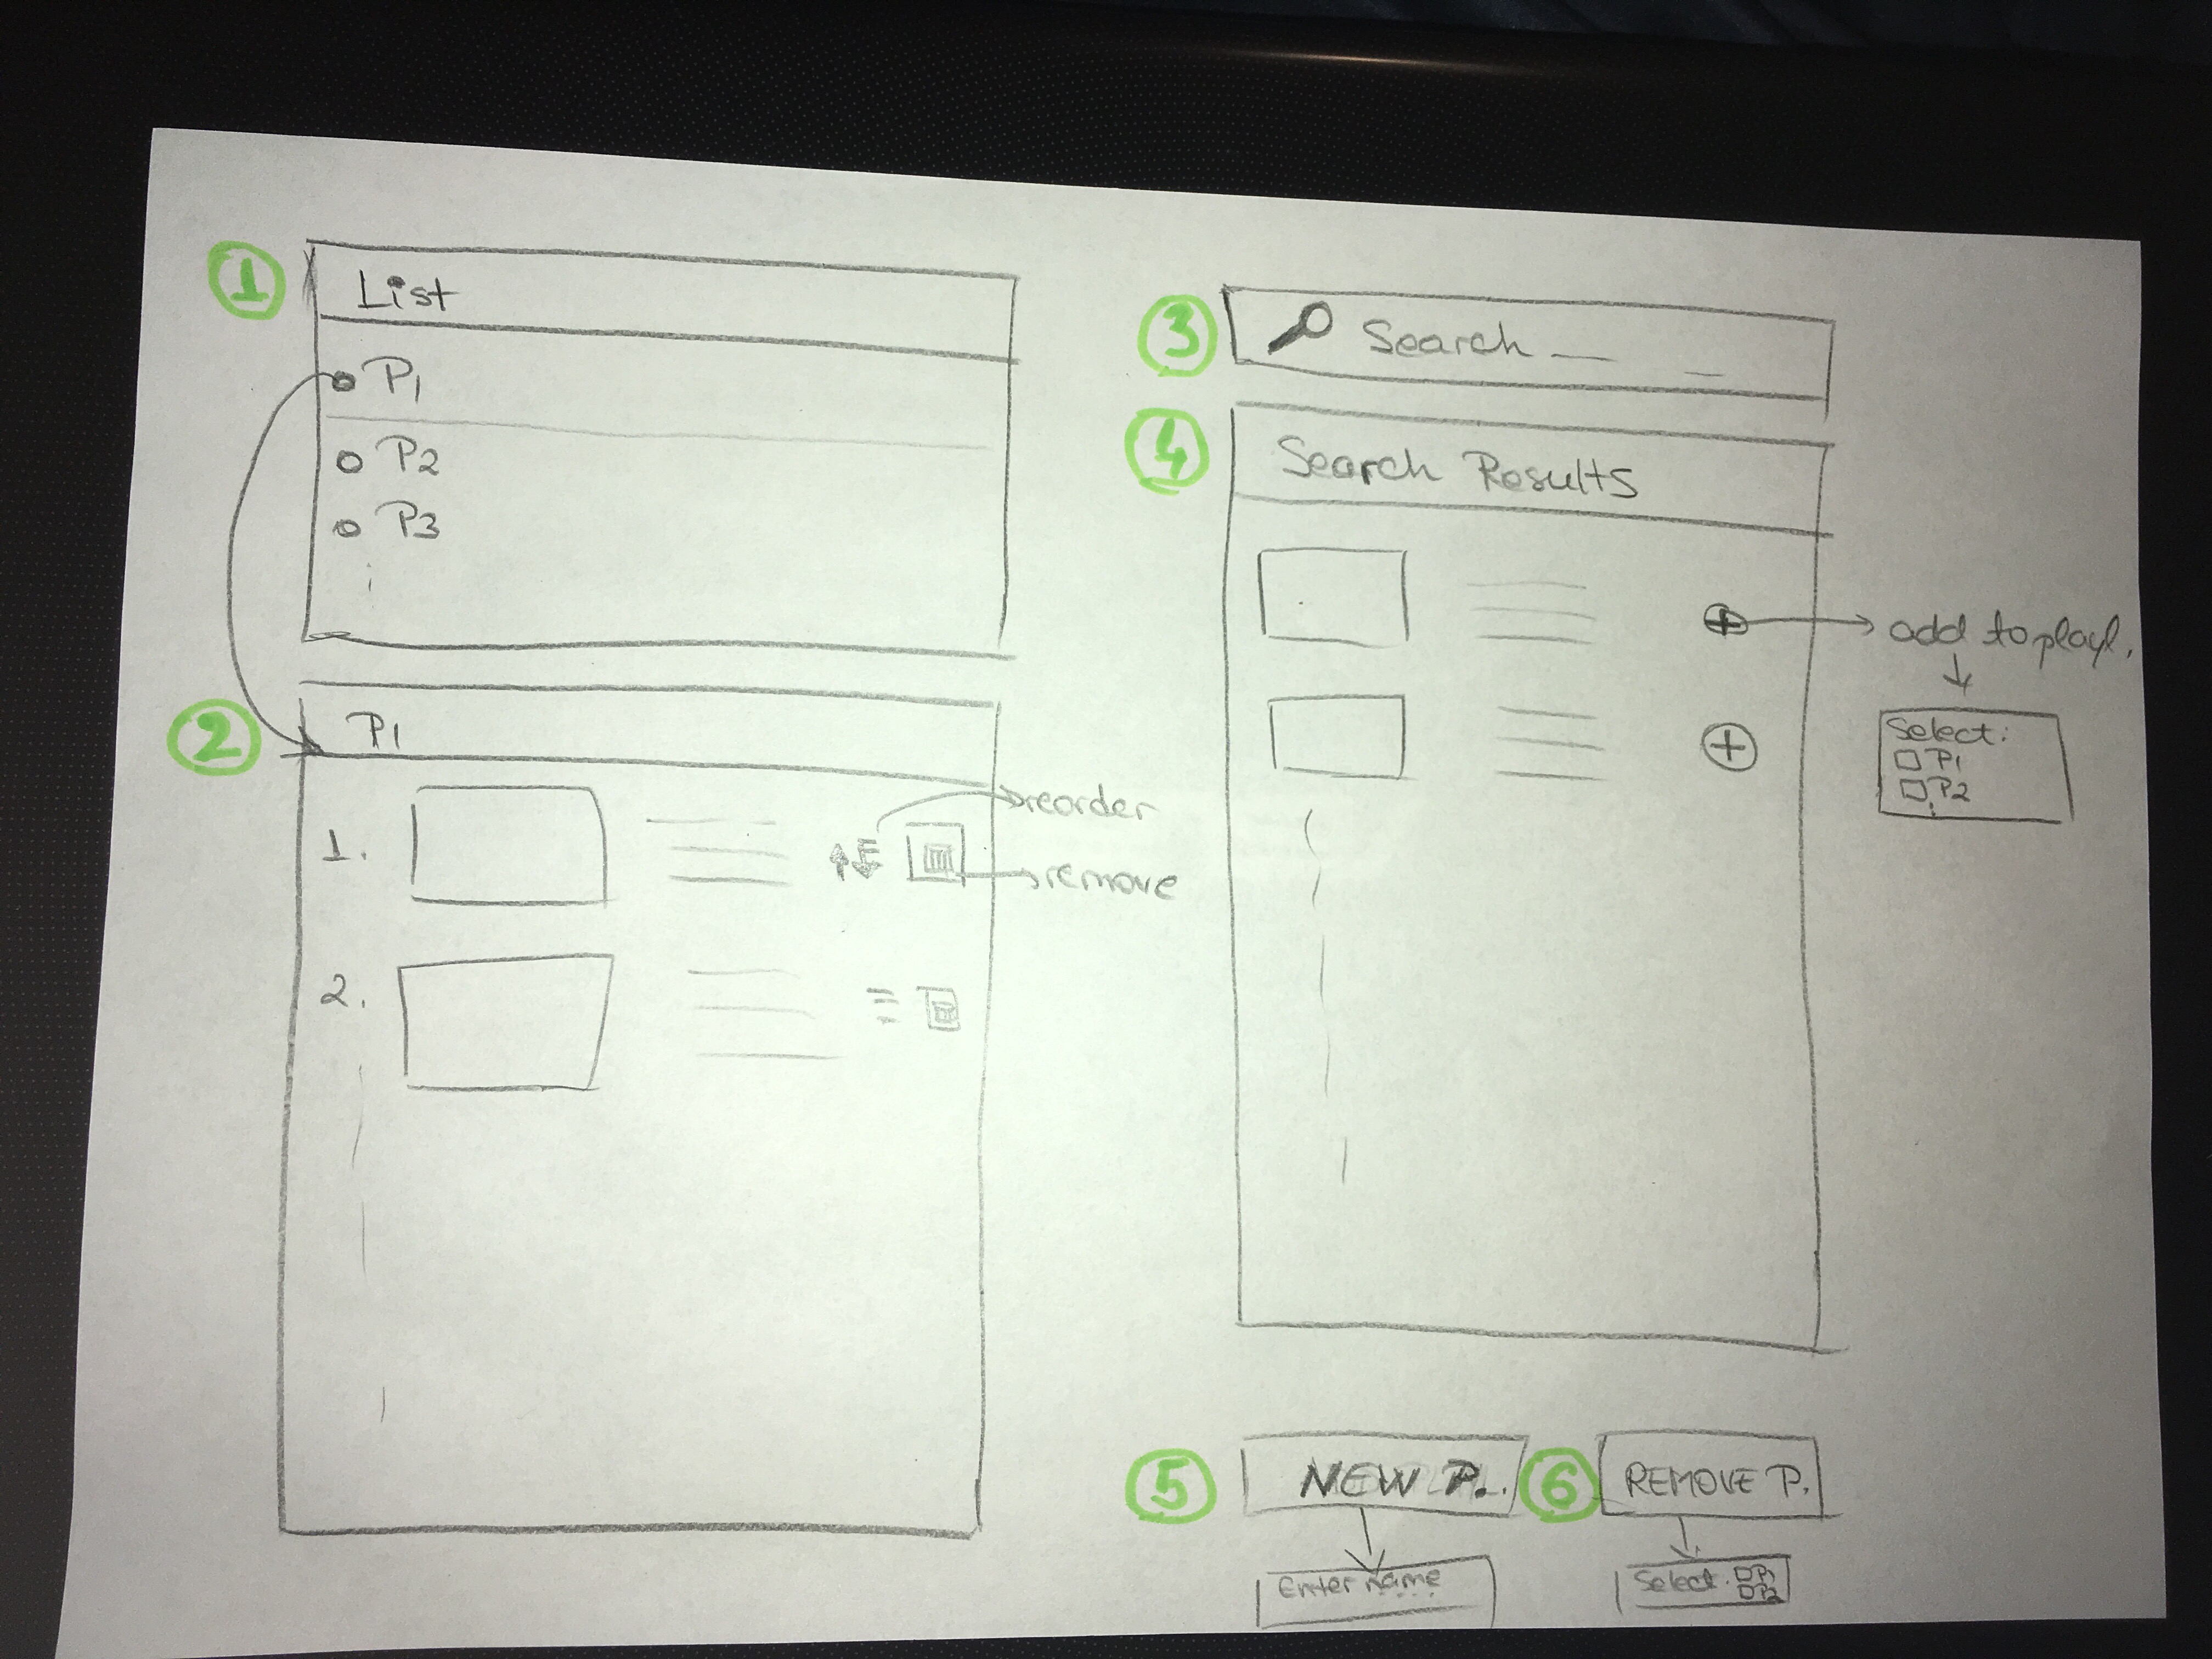 1 List
P1
P2
P3
2 P1
1.
reorder
remove
2.
3 Search
4 Search Results
add to playl.
Select:
P1
P2
5 NEW P.
Enter name
6 REMOVE P.
Select: P1
P2